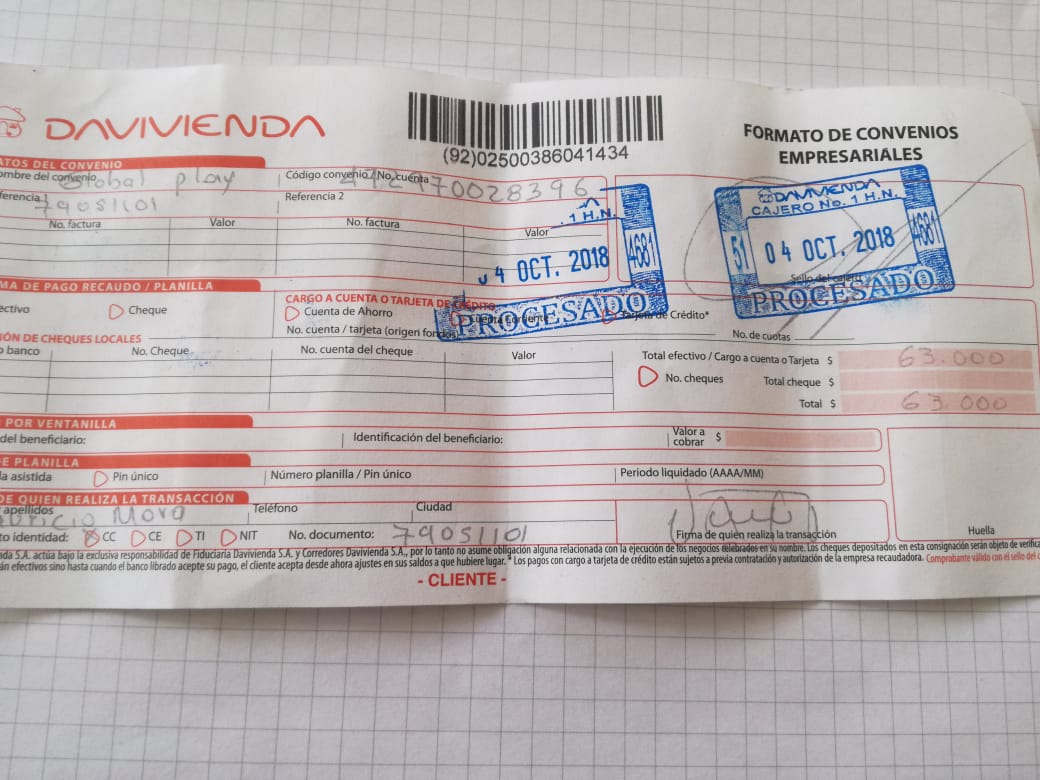 DAVIVIENDA
(92)02500386041434
FORMATO DE CONVENIOS
EMPRESARIALES
ATOS DEL CONVENIO
ombre del convenio Global play
Código convenio / No. cuenta 70028396
ferencia 1 79051101
Referencia 2
No. factura Valor No. factura Valor
1 H.N.
04 OCT. 2018
4681
PROCESADO
DAVIVIENDA
CAJERO No. 1 H.N.
51 04 OCT. 2018 4681
Sello del cajero
PROCESADO
MA DE PAGO RECAUDO / PLANILLA
ectivo Cheque
CARGO A CUENTA O TARJETA DE CRÉDITO
Cuenta de Ahorro Cuenta Corriente Tarjeta de Crédito*
No. cuenta / tarjeta (origen fondos) No. de cuotas
IÓN DE CHEQUES LOCALES
o banco No. Cheque No. cuenta del cheque Valor
Total efectivo / Cargo a cuenta o Tarjeta $ 63.000
No. cheques Total cheque $
Total $ 63.000
POR VENTANILLA
del beneficiario: Identificación del beneficiario: Valor a cobrar $
E PLANILLA
la asistida Pin único Número planilla / Pin único Periodo liquidado (AAAA/MM)
DE QUIEN REALIZA LA TRANSACCIÓN
apellidos Teléfono Ciudad
uricio Mora
to identidad: CC CE TI NIT No. documento: 79051101
Firma de quién realiza la transacción
Huella
nda S.A. actúa bajo la exclusiva responsabilidad de Fiduciaria Davivienda S.A. y Corredores Davivienda S.A., por lo tanto no asume obligación alguna relacionada con la ejecución de los negocios celebrados en su nombre. Los cheques depositados en esta consignación serán objeto de verifica
án efectivos sino hasta cuando el banco librado acepte su pago, el cliente acepta desde ahora ajustes en sus saldos a que hubiere lugar. * Los pagos con cargo a tarjeta de crédito están sujetos a previa contratación y autorización de la empresa recaudadora. Comprobante válido con el sello del c
- CLIENTE -